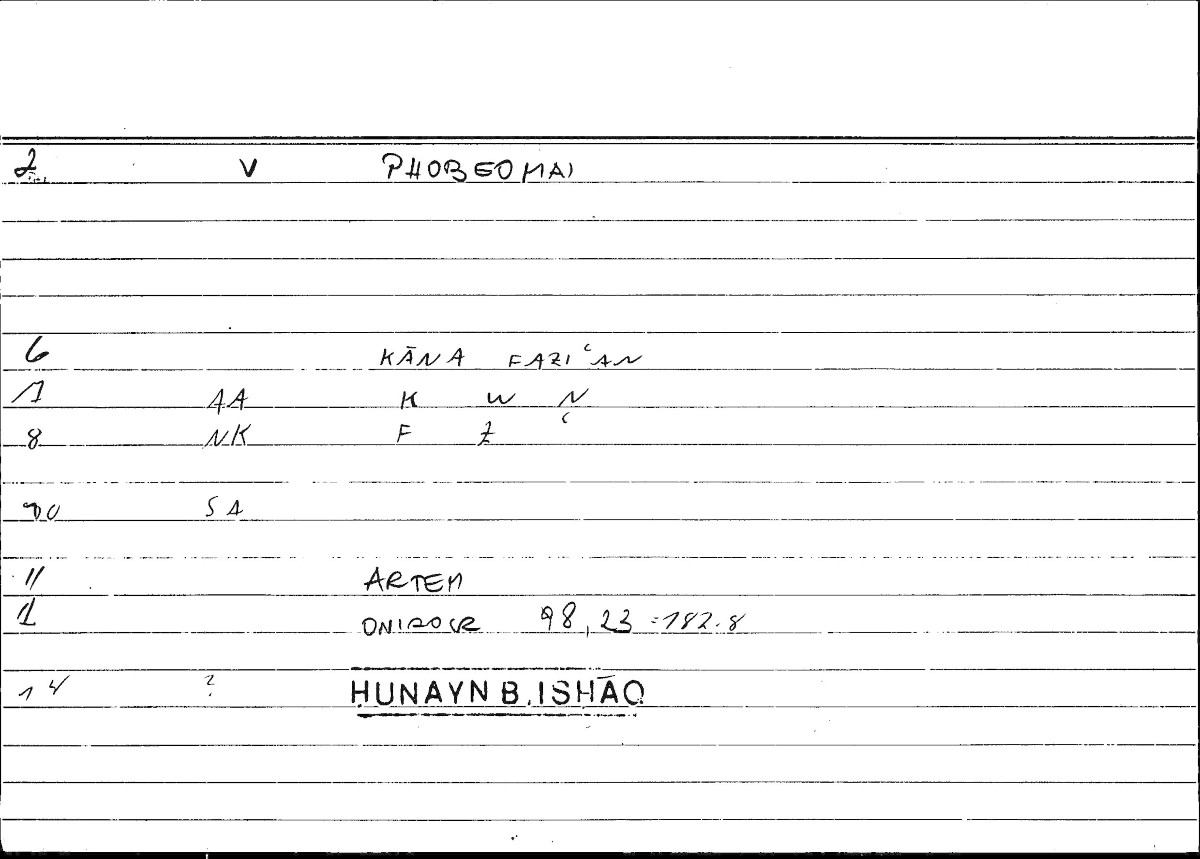 2 V PHOBEOMAI
6 KĀNA FAZIʿAN
1 AA K W N
8 NK F Z ʿ
10 SA
11 ARTEM
1 ONIROCR 98,23 = 182.8
14 ? ḤUNAYN B. ISḤĀQ